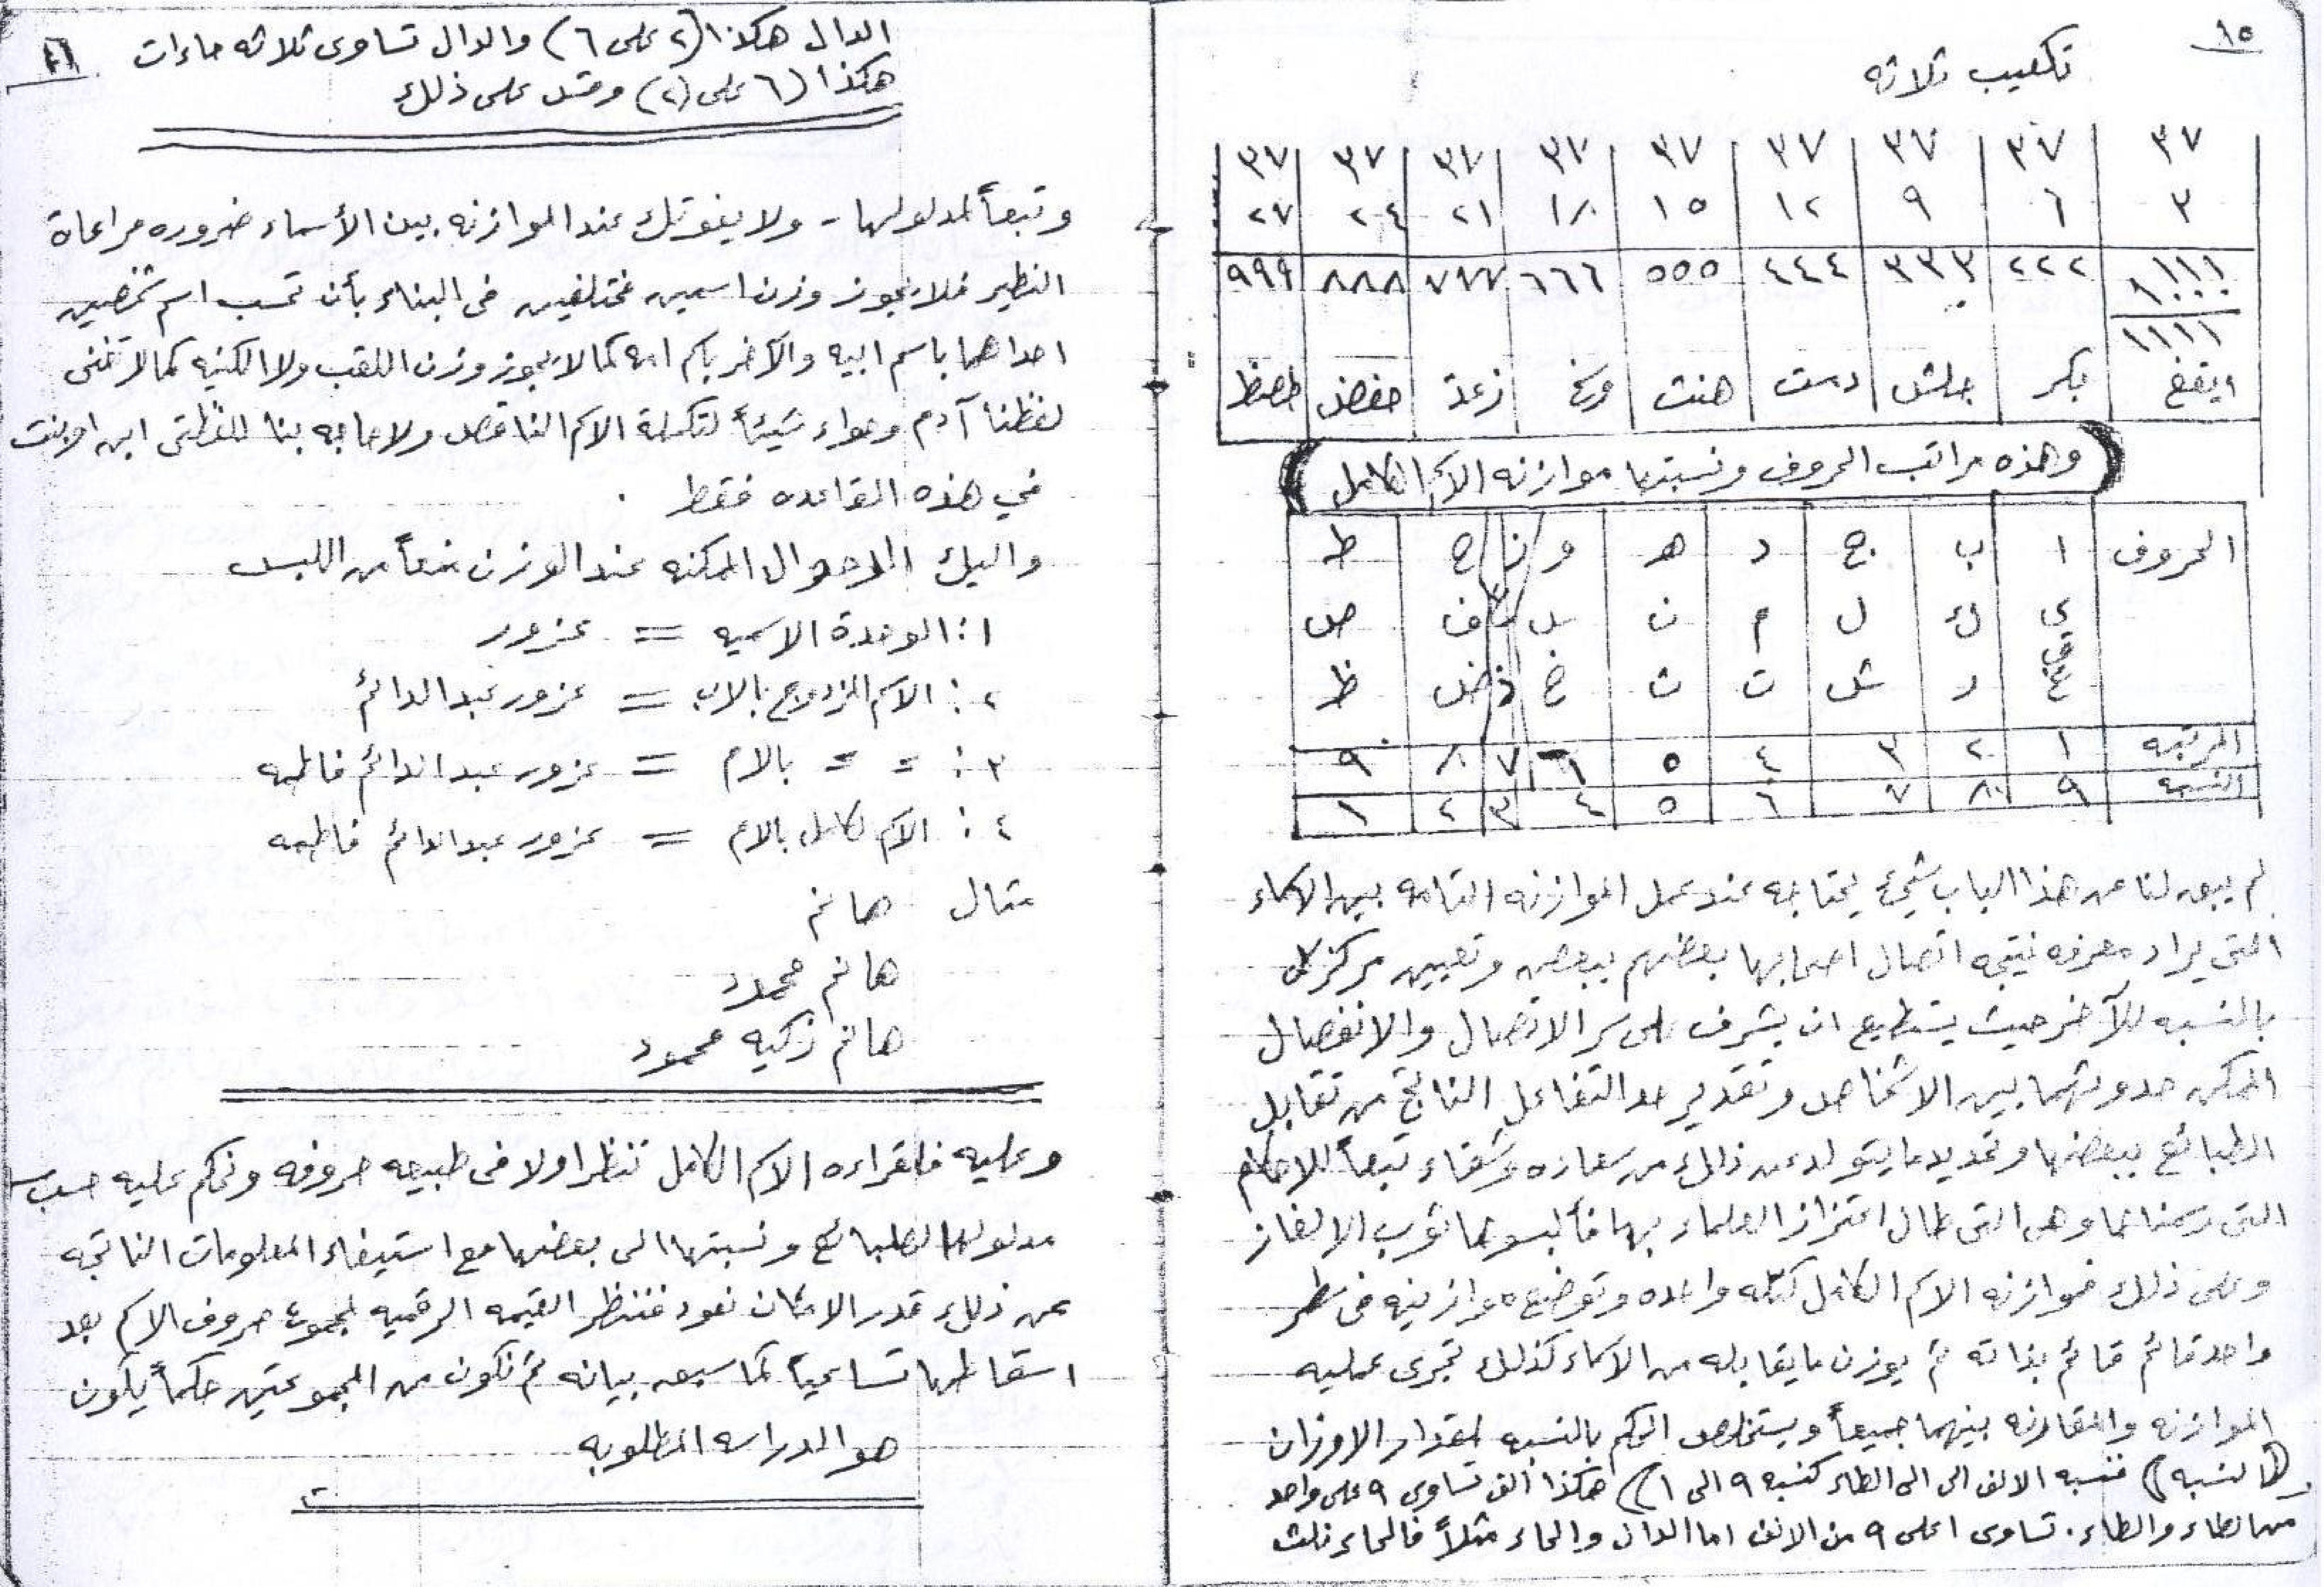 ١٥
تكعيب ثلاثه
٣٧ ٣٧ ٣٧ ٣٧ ٣٧ ٣٧ ٣٧ ٣٧ ٣٧
٣ ٦ ٩ ١٢ ١٥ ١٨ ٢١ ٢٤ ٢٧
١١١ ٢٢٢ ٣٣٣ ٤٤٤ ٥٥٥ ٦٦٦ ٧٧٧ ٨٨٨ ٩٩٩
١٠٠٠
١١١١
ايقغ بكر جلش دمت هنث وسخ زعذ حفض طصظ
(وهذه مراتب الحروف ونسبتها موازنه الاسم الكامل)
الحروف ا ب ج د هـ و ز ح ط
ى ك ل م ن س ع ف ص
ق
غ ر ش ت ث خ ذ ض ظ
المرتبه ١ ٢ ٣ ٤ ٥ ٦ ٧ ٨ ٩
النسبه ٩ ٨ ٧ ٦ ٥ ٤ ٣ ٢ ١
لم يبق لنا من هذا الباب شيئ يحتاجه عند عمل الموازنه التامه بين الاسماء
التى يراد معرفه نتيجه اتصال اصحابها بعضهم ببعض وتعيين مركز كل
بالنسبه للآخر حيث يستطيع ان يشرف على سر الاتصال والانفصال
الممكن حدوثهما بين الاشخاص وتقدير مد التفاعل الناتج من تقابل
الطبائع ببعضها وتحديد ما يتولد عن ذلك من سعاده وشقاء تبعاً للاحكام
التى رسمناها وهى التى طال اعتزاز العلماء بها فألبسوها ثوب الالغاز
وعلى ذلك فموازنه الاسم الكامل كتله واحده وتوضع موازينه فى سطر
واحد قائم قائم بذاته ثم يوزن ما يقابله من الاسماء كذلك تجرى عمليه
الموازنه والمقارنه بينهما جميعاً ويستخلص الحكم بالنسبه لمقدار الاوزان
(النسبه) فنسبه الالف الى الى الطاء كنسبه ٩ الى ١) هكذا ألف تساوى ٩ على واحد
من الطاء والطاء. تساوى ١ على ٩ من الالف اما الدال والحاء مثلاً فالحاء ثلث
١٦
الدال هكذا (٢ على ٦) والدال تساوى ثلاثه حاءات
هكذا (٦ على ٢) وقس على ذلك
وتبعاً لمدلولها - ولا يفوتك عند الموازنه بين الأسماء ضروره مراعاة
النظير فلا يجوز وزن اسمين مختلفين فى البناء بأن تحسب اسم شخصين
احداهما باسم ابيه والآخر باسم امه كما لا يجوز وزن اللقب ولا الكنيه كما لا تغنى
لفظنا آدم وحواء شيئاً لتكملة الاسم الناقص ولا حاجه بنا للفظتى ابن او بنت
في هذه القاعده فقط .
واليك الاحوال الممكنه عند الوزن منعاً من اللبس
١: الوحدة الاسميه = عزور
٢: الاسم المزدوج بالاب = عزور عبدالدائم
٣: = = بالام = عزور عبدالدائم فاطمه
٤: الاسم كامل بالام = عزور عبدالدائم فاطمه
مثال هانم
هانم محمود
هانم زكيه محمود
وعليه فلقراءه الاسم الكامل تنظر اولا فى طبيعه حروفه ونحكم عليه حسب
مدلولها لطبائع ونسبتها الى بعضها مع استيفاء المعلومات الناتجه
عن ذلك قدر الامكان نعود فننظر القيمه الرقميه لمجموع حروف الاسم بعد
اسقاطها تساعياً كما سبق بيانه ثم نكون من المجموعتين حكماً يكون
هو الدراسه المطلوبه